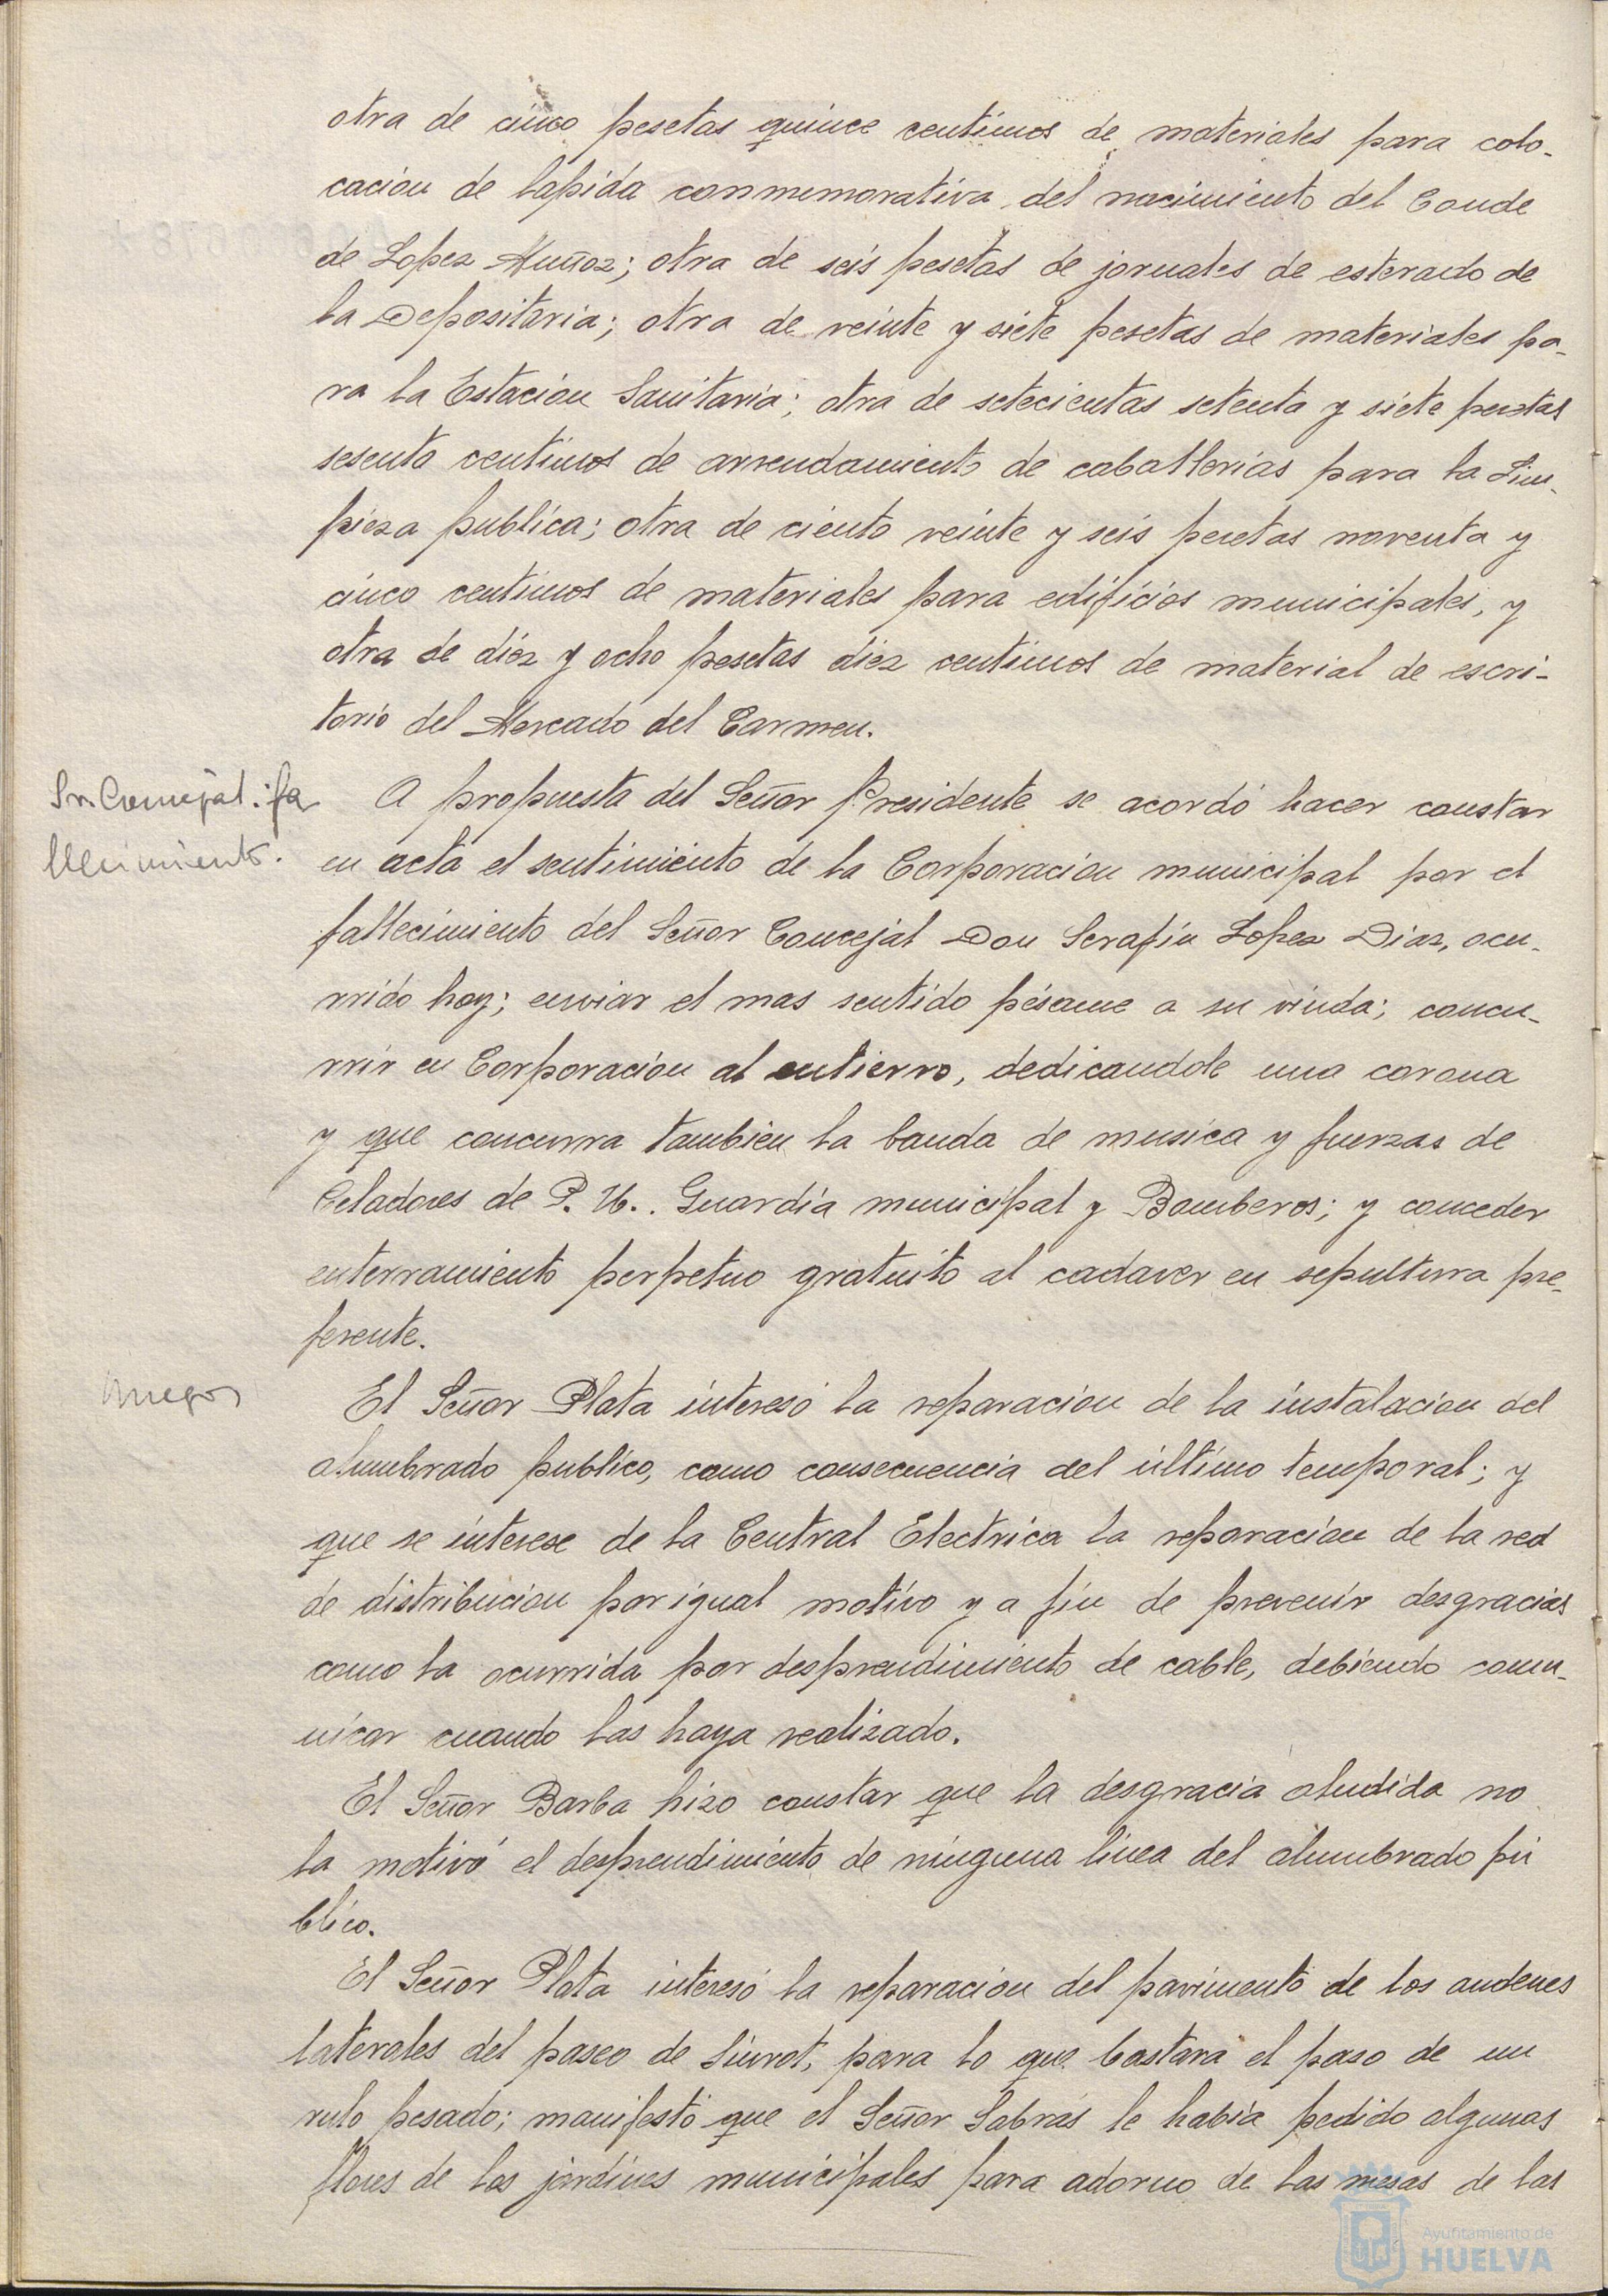 otra de cinco pesetas quince centimos de materiales para colo-
cacion de lapida conmemorativa del nacimiento del Conde
de Lopez Muñoz; otra de seis pesetas de jornales de esterado de
la Depositaria; otra de veinte y siete pesetas de materiales pa-
ra la Estacion Sanitaria; otra de setecientas setenta y siete pesetas
sesenta centimos de arrendamiento de caballerias para la Lim-
pieza publica; otra de ciento veinte y seis pesetas noventa y
cinco centimos de materiales para edificios municipales, y
otra de diez y ocho pesetas diez centimos de material de escri-
torio del Mercado del Carmen.
Sr. Concejal: fa
llecimiento.
A propuesta del Señor Presidente se acordó hacer constar
en acta el sentimiento de la Corporacion municipal por el
fallecimiento del Señor Concejal Don Serafin Lopez Diaz, ocu-
rrido hoy; enviar el mas sentido pésame a su viuda; concu-
rrir en Corporación al entierro, dedicandole una corona
y que concurra tambien la banda de musica y fuerzas de
Celadores de P. U.. Guardia municipal y Bomberos; y conceder
enterramiento perpetuo gratuito al cadaver en sepultura pre-
ferente.
Ruegos
El Señor Plata interesó la reparacion de la instalacion del
alumbrado publico, como consecuencia del último temporal; y
que se interese de la Central Electrica la reparacion de la red
de distribucion por igual motivo y a fin de prevenir desgracias
como la ocurrida por desprendimiento de cable, debiendo comu-
nicar cuando las haya realizado.
El Señor Barba hizo constar que la desgracia aludida no
la motivó el desprendimiento de ninguna linea del alumbrado pú
blico.
El Señor Plata interesó la reparacion del pavimento de los andenes
laterales del paseo de Siurot, para lo que bastara el paso de un
rulo pesado; manifestó que el Señor Sabrás le habia pedido algunas
flores de los jardines municipales para adorno de las mesas de las
Ayuntamiento de
HUELVA